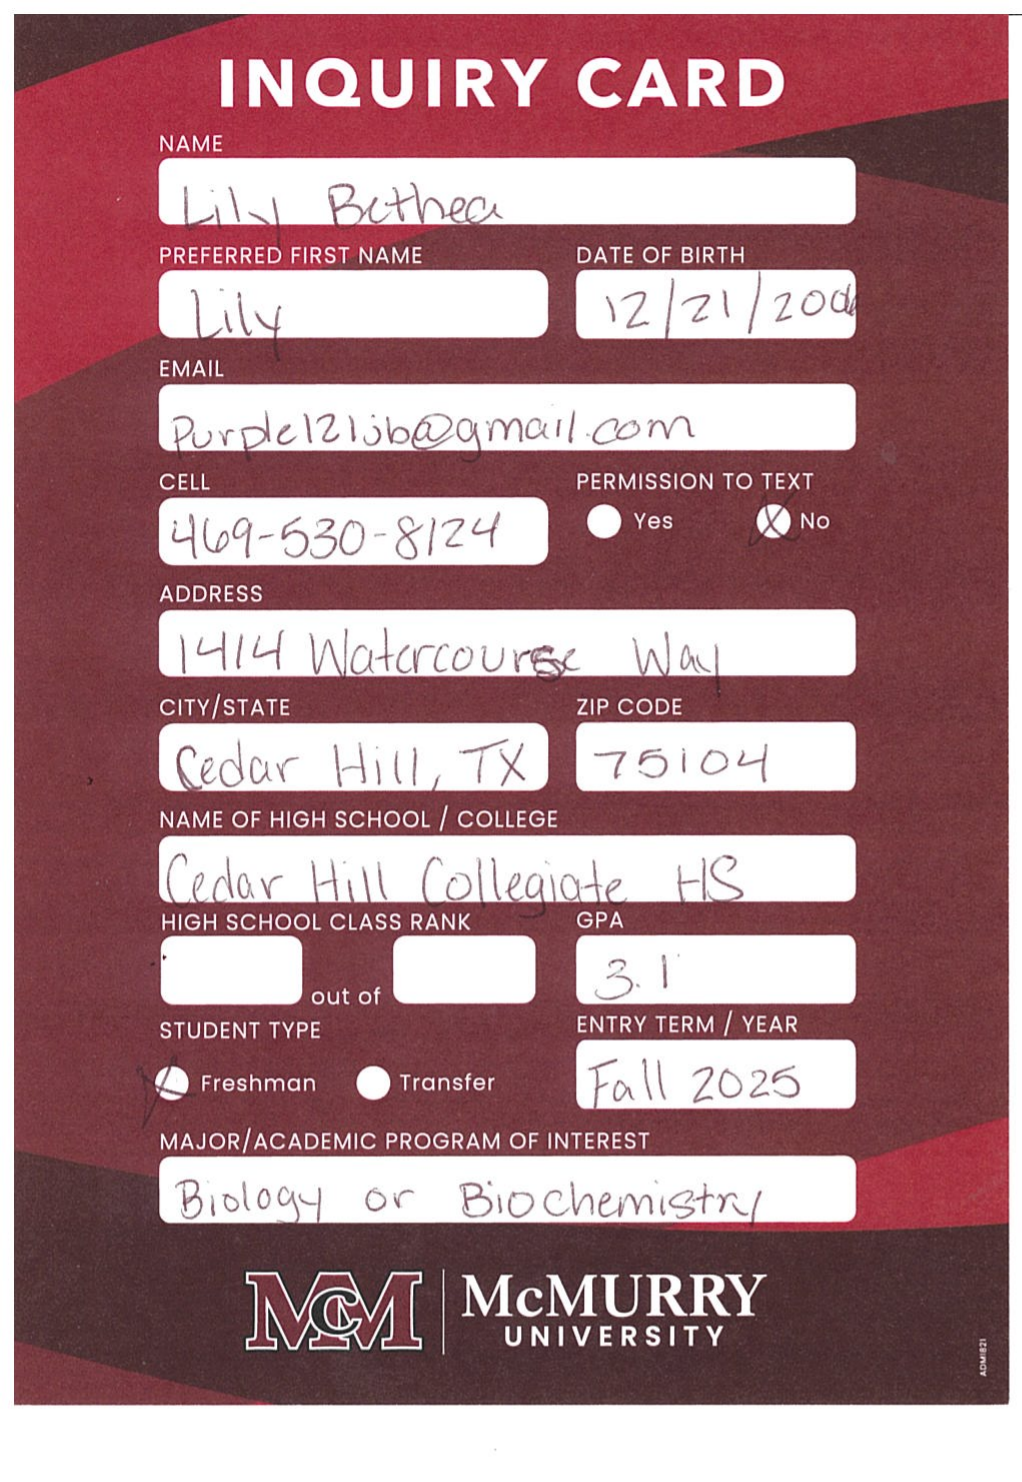 INQUIRY CARD
NAME
Lily Bethea
PREFERRED FIRST NAME
Lily
DATE OF BIRTH
12/21/2006
EMAIL
Purple121jb@gmail.com
CELL
469-530-8124
PERMISSION TO TEXT
Yes No
ADDRESS
1414 Watercourse Way
CITY/STATE
Cedar Hill, TX
ZIP CODE
75104
NAME OF HIGH SCHOOL / COLLEGE
Cedar Hill Collegiate HS
HIGH SCHOOL CLASS RANK
out of
GPA
3.1
STUDENT TYPE
Freshman Transfer
ENTRY TERM / YEAR
Fall 2025
MAJOR/ACADEMIC PROGRAM OF INTEREST
Biology or Biochemistry
McM
McMURRY
UNIVERSITY
ADM1821